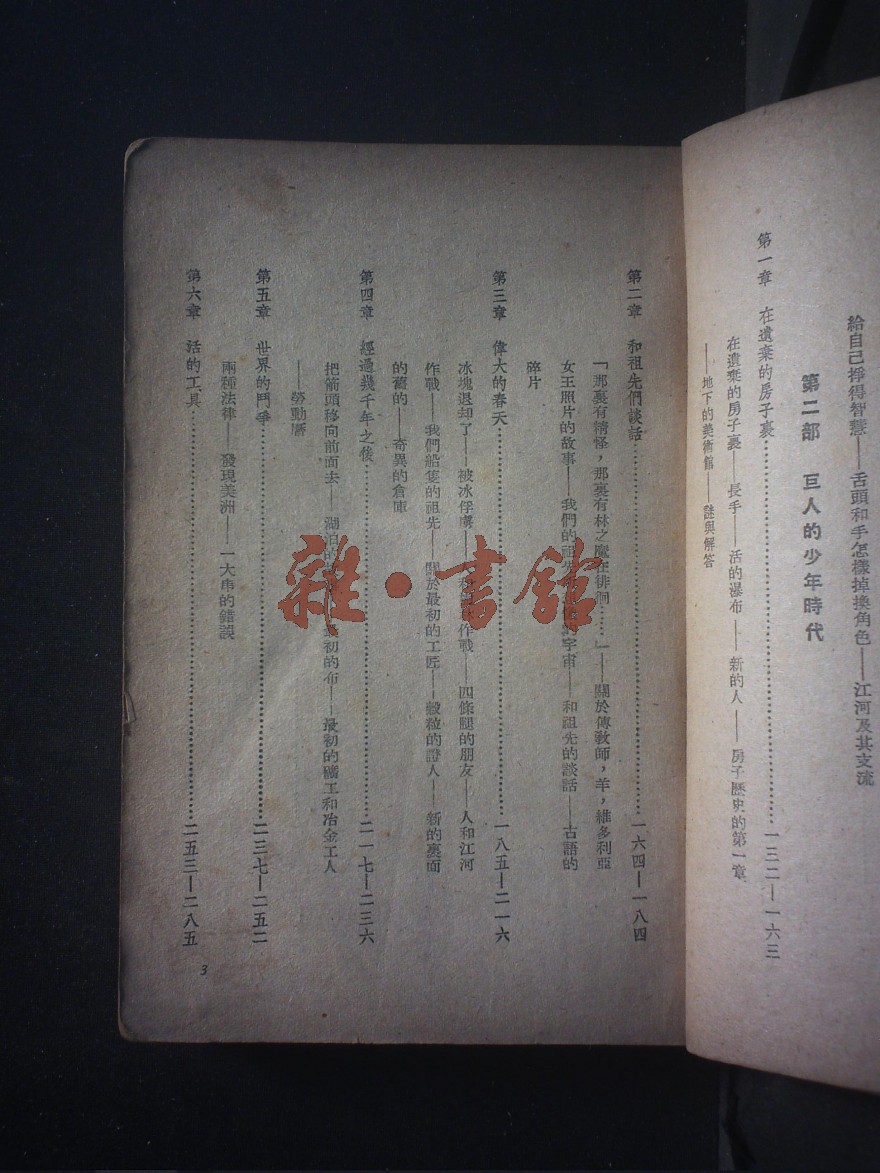 給自己掙得智慧——舌頭和手怎樣掉換角色——江河及其支流
第二部 巨人的少年時代
第一章 在遺棄的房子裏……一三二—一六三
在遺棄的房子裏——長手——活的瀑布——新的人——房子歷史的第一章
——地下的美術館——謎與解答
第二章 和祖先們談話……一六四—一八四
「那裏有精怪，那裏有林之魔在徘徊……」——關於傳敎師，羊，維多利亞
女王照片的故事——我們的祖先宇宙——和祖先的談話——古語的
碎片
第三章 偉大的春天……一八五—二一六
冰塊退却了——被冰俘虜——作戰——四條腿的朋友——人和江河
作戰——我們船隻的祖先——關於最初的工匠——穀粒的證人——新的裏面
的舊的——奇異的倉庫
第四章 經過幾千年之後……二一七—二三六
把箭頭移向前面去——湖泊的最初的布——最初的礦工和冶金工人
——勞動曆
第五章 世界的鬥爭……二三七—二五二
兩種法律——發現美洲——一大串的錯誤
第六章 活的工具……二五三—二八五
3
雜·書館